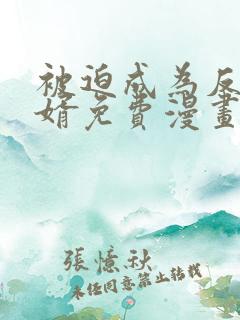 被迫成为反
婿免費漫畫
張憶秋
未经同意禁止转载